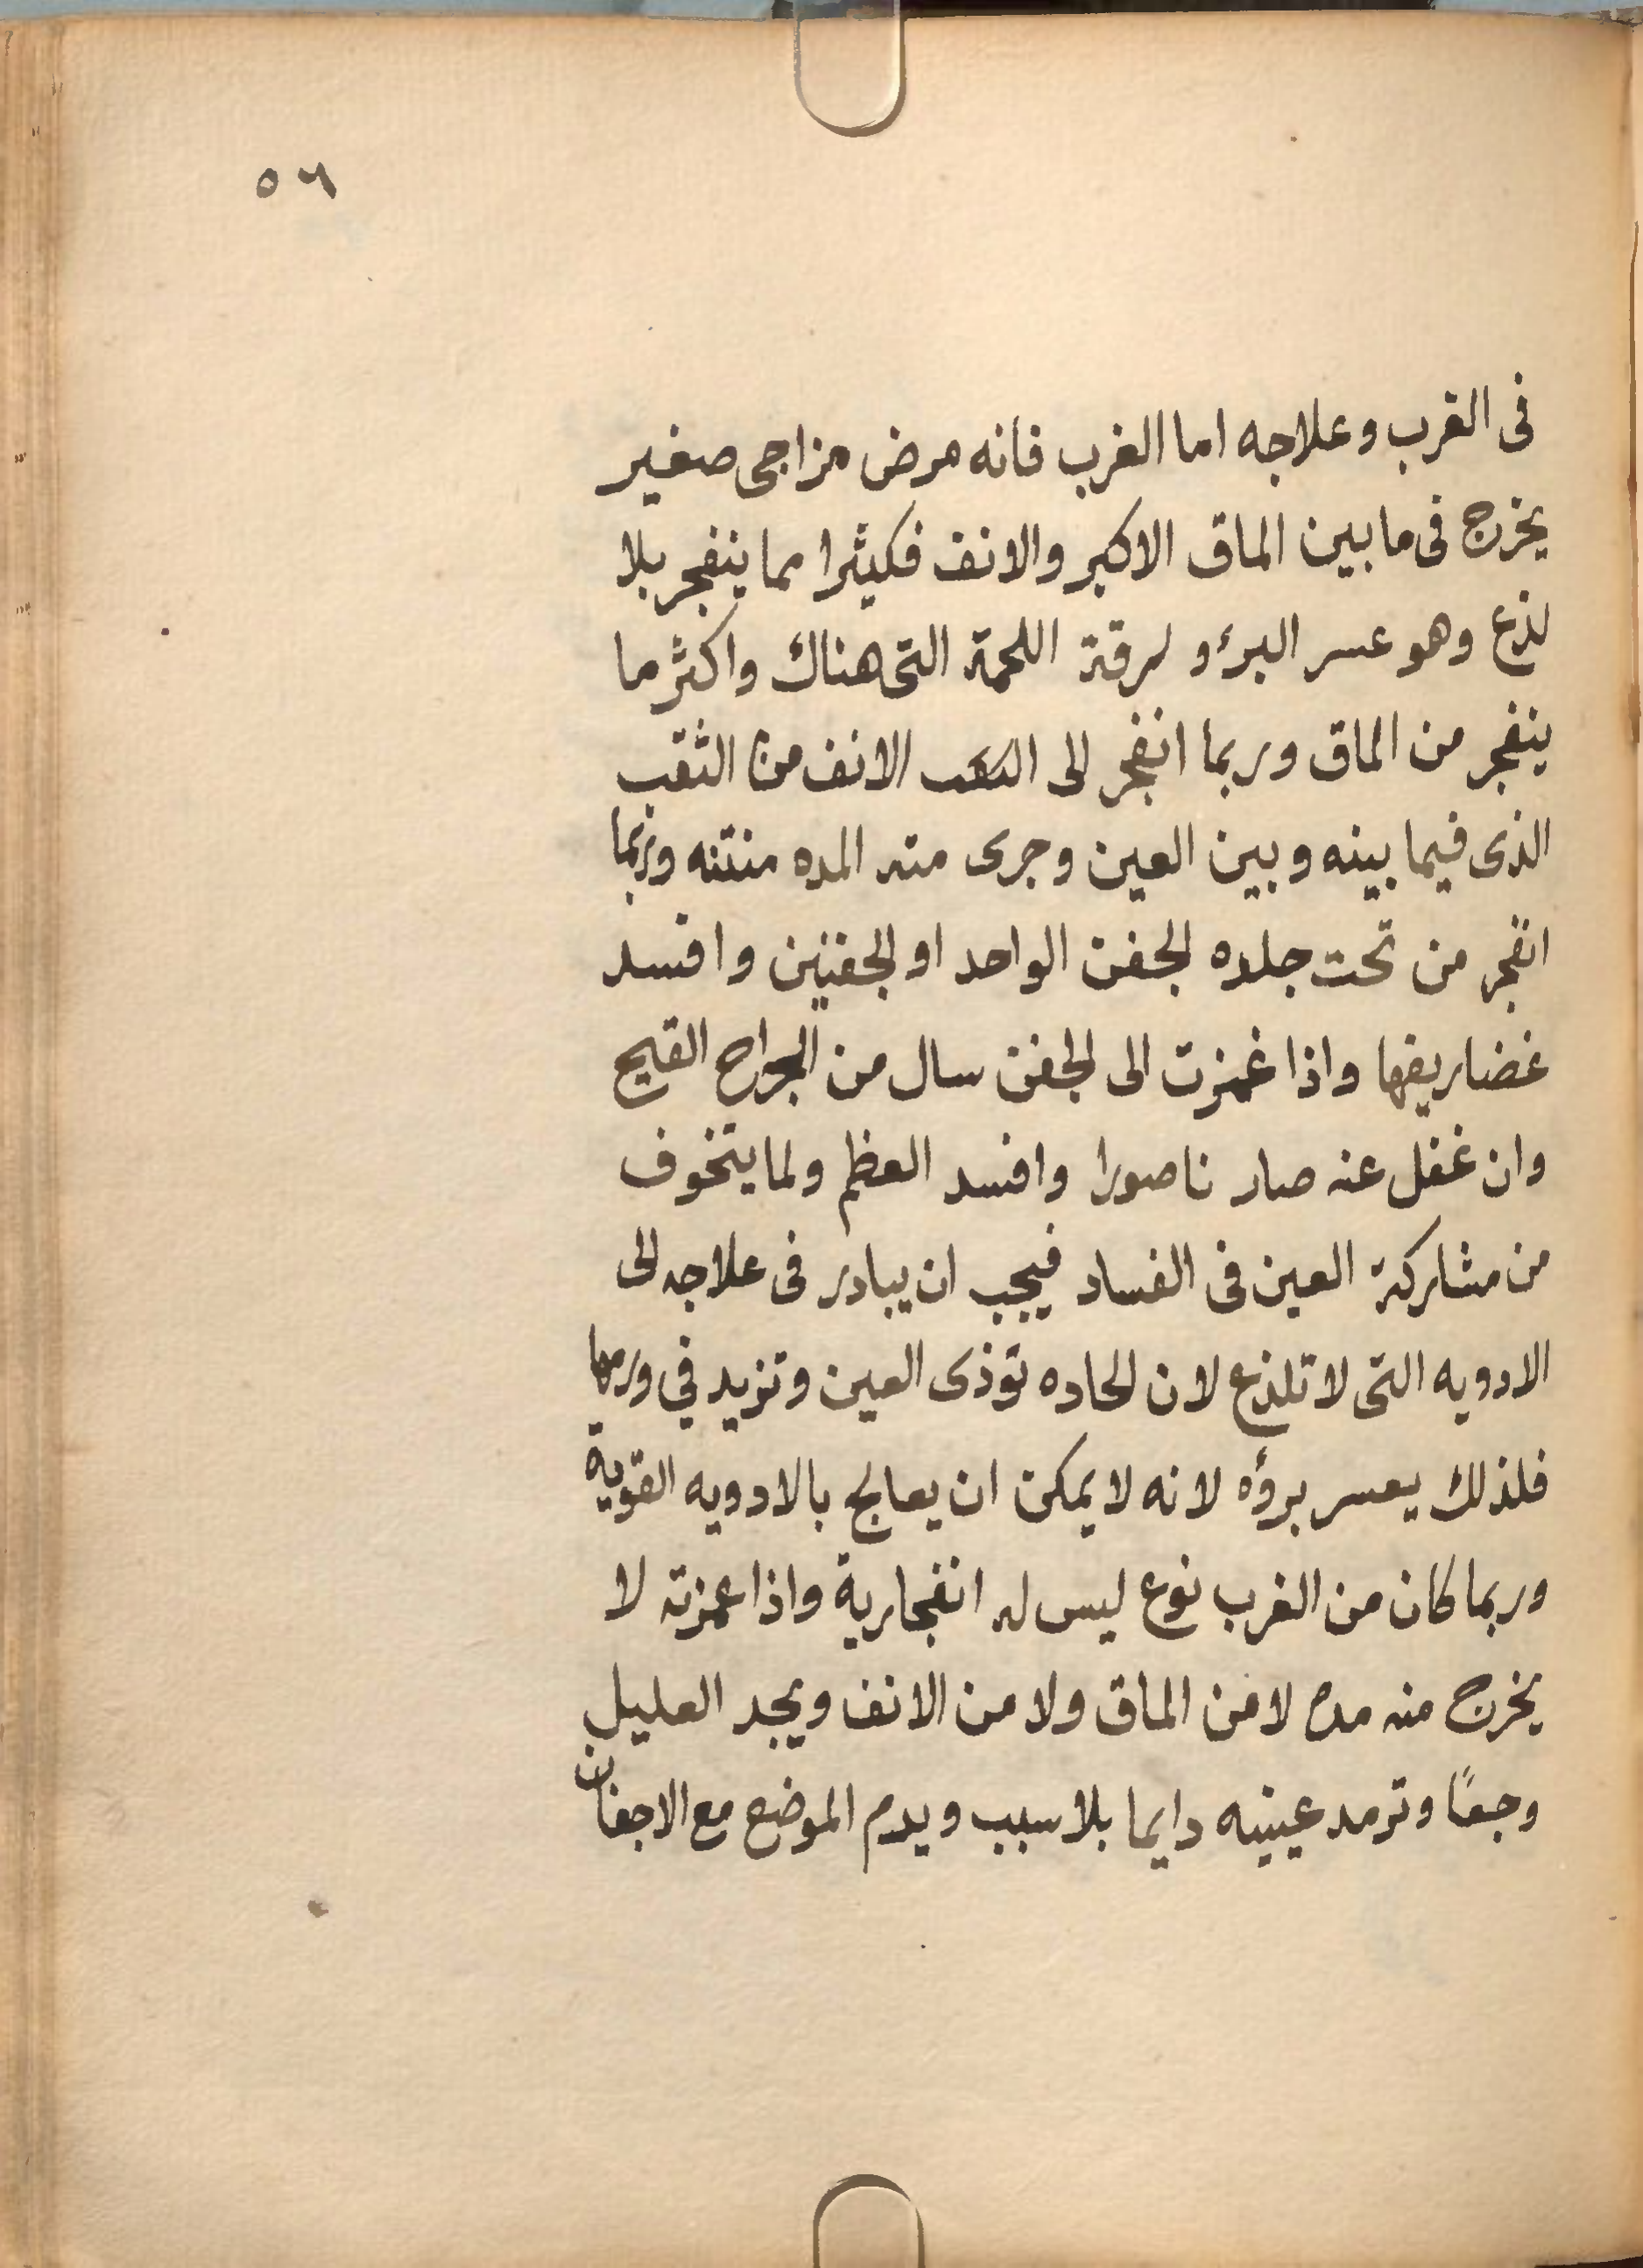 ٥٦
فى الغرب وعلاجه اما الغرب فانه مرض مزاجى صغير
يخرج فى ما بين الماق الاكبر والانف فكيثرا مما ينفجر بلا
لذع وهو عسر البرؤ لرقة اللحمة التى هناك واكثر ما
ينفجر من الماق وربما انفجر الى الانف من الثقب
الذى فيما بينه وبين العين وجرى منه المده منتنه وربما
انفجر من تحت جلده الجفن الواحد او الجفنين وافسد
غضاريفها واذا غمزت الى الجفن سال من الجراح القيح
وان غفل عنه صار ناصورا وافسد العظم ولما يتخوف
من مشاركة العين فى الفساد فيجب ان يبادر فى علاجه الى
الادويه التى لا تلذع لان الحاده توذى العين وتزيد في ورمها
فلذلك يعسر برؤه لانه لا يمكن ان يعالج بالادويه القوية
وربما كان من الغرب نوع ليس له انفجارية واذا غمزته لا
يخرج منه مده لا من الماق ولا من الانف ويجد العليل
وجعًا وترمد عينيه دايما بلا سبب ويدم الموضع مع الاجفان